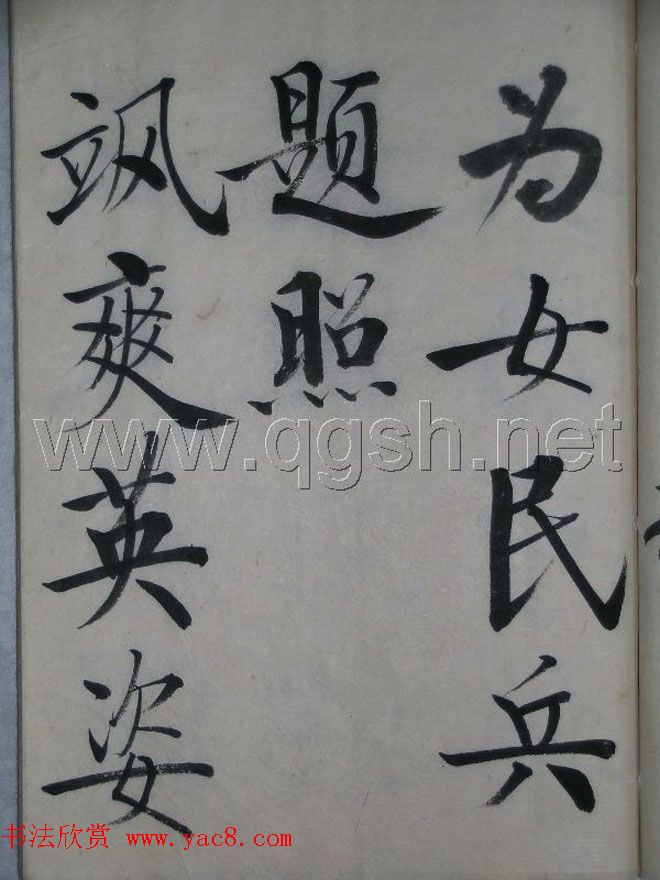 为女民兵
题照
飒爽英姿
www.qgsh.net
书法欣赏 www.yac8.com